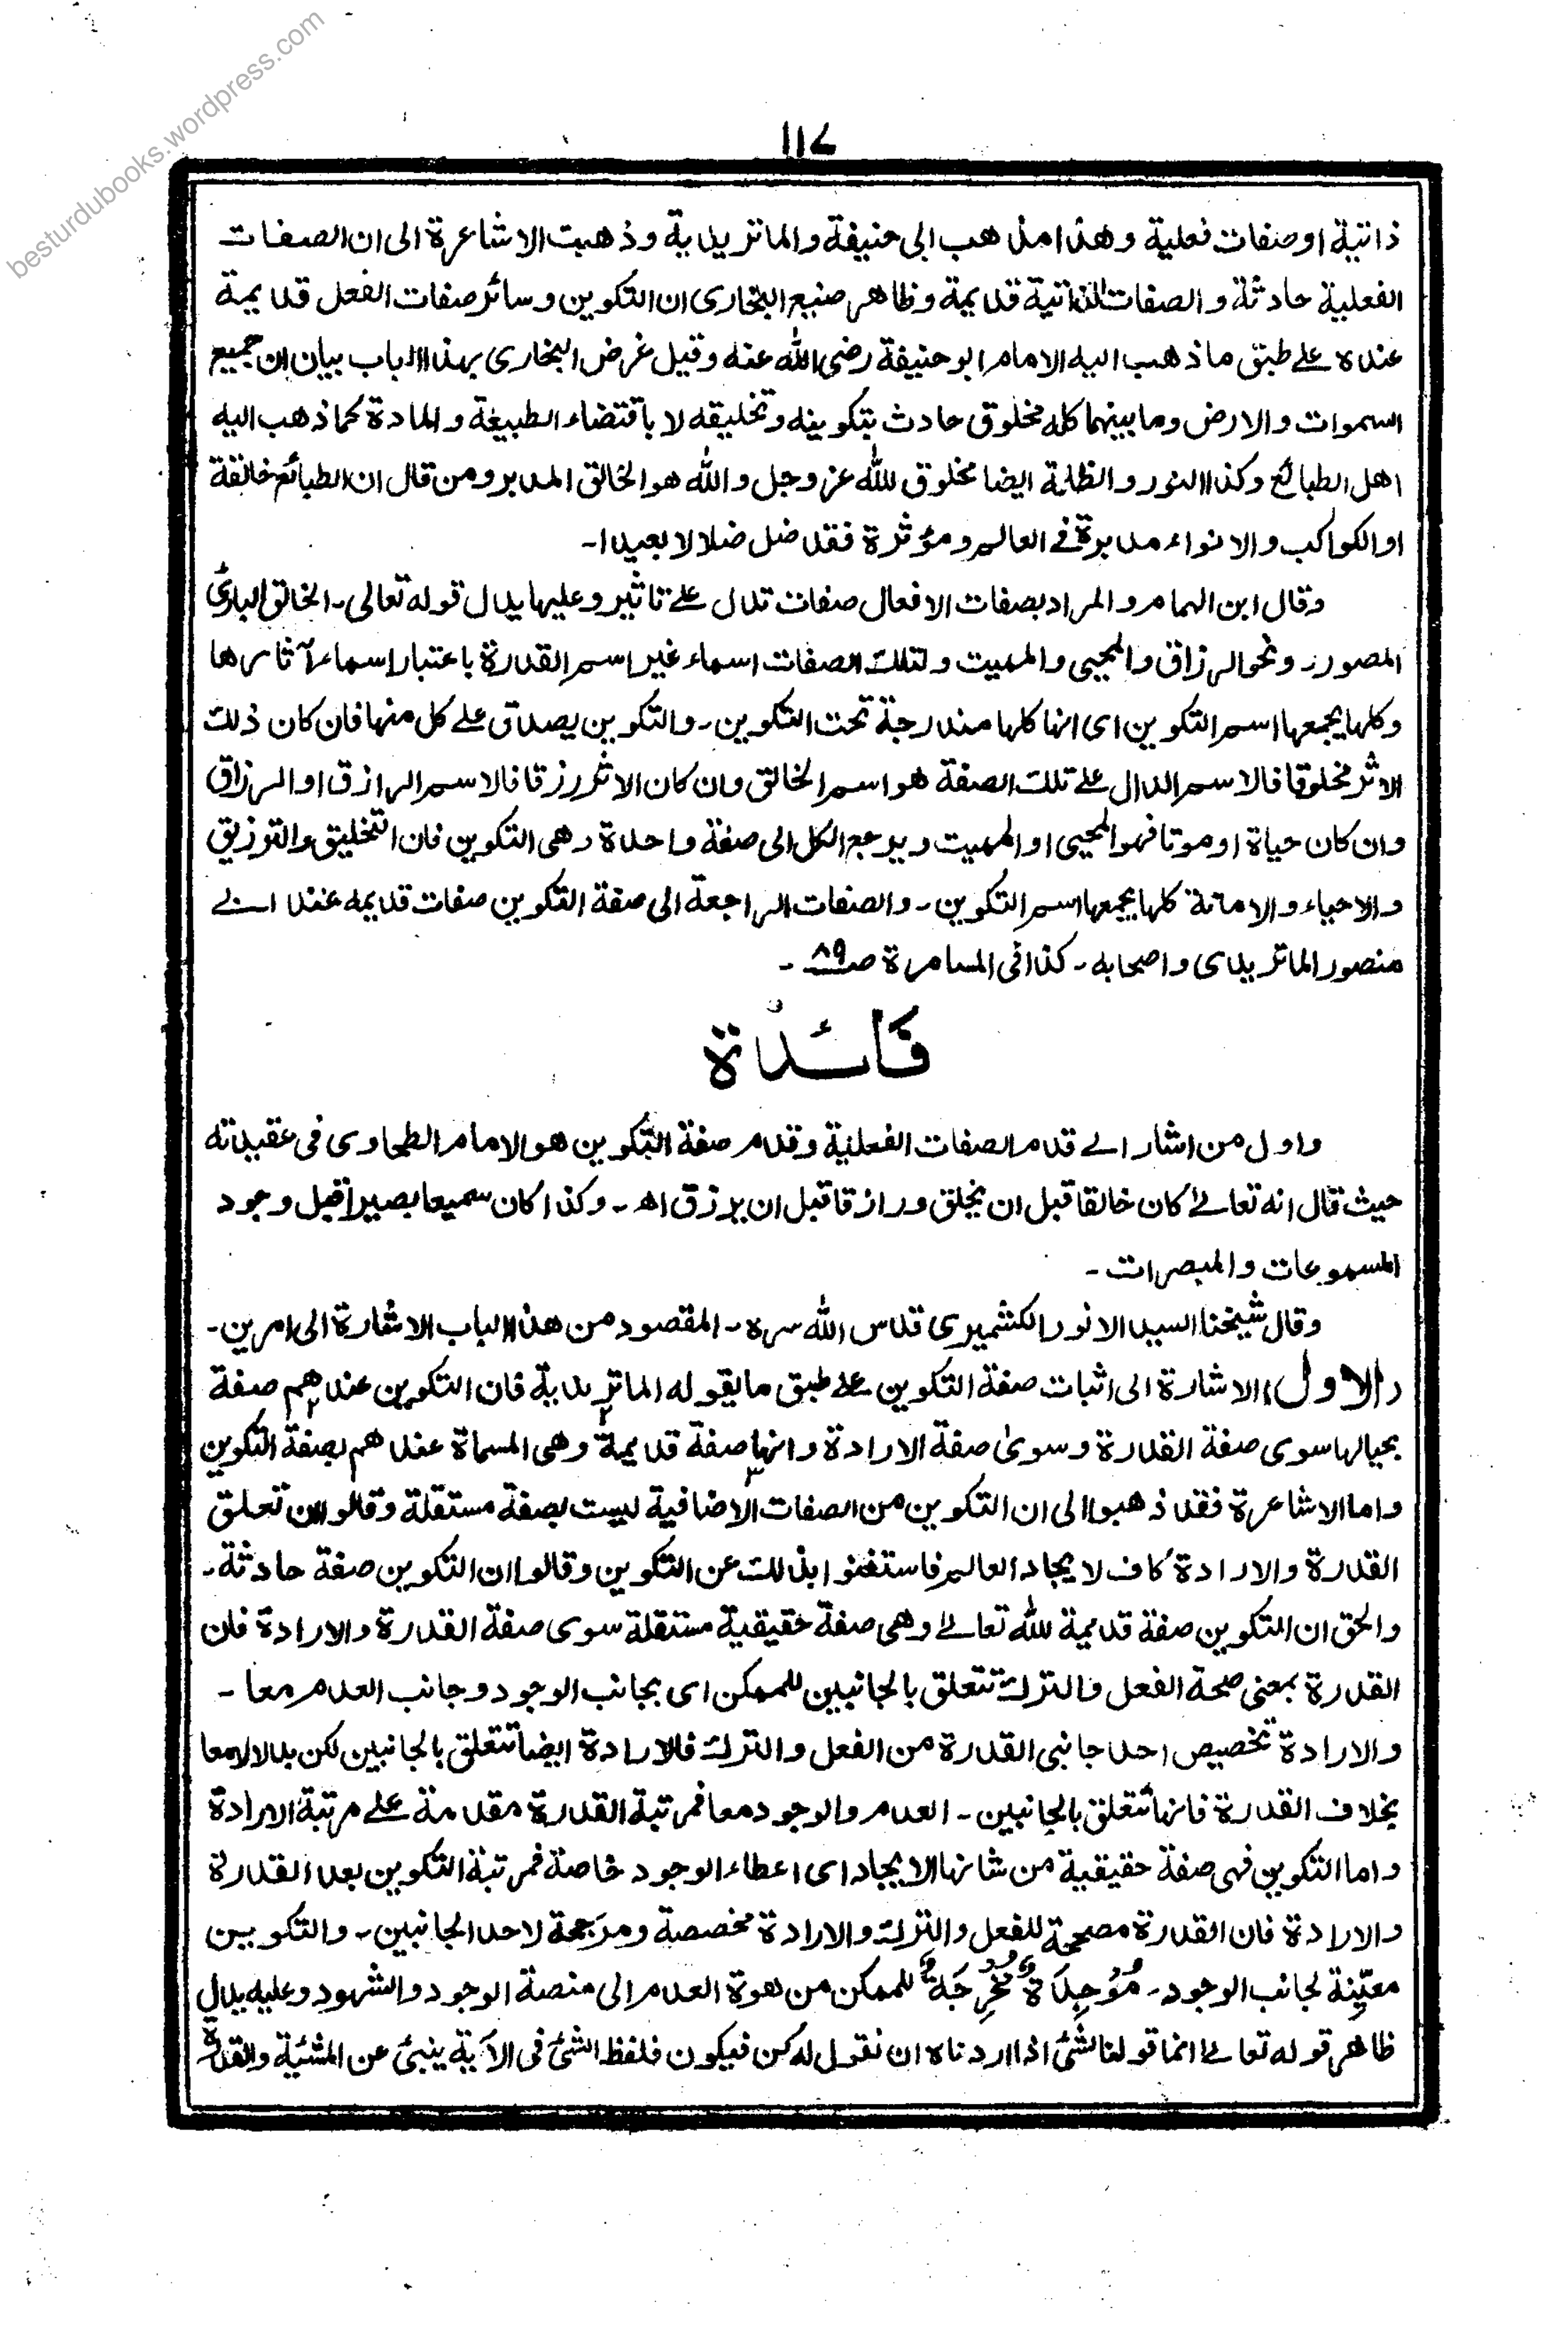 besturdubooks.wordpress.com
١١٧
ذاتية او صفات فعلية وهذا مذهب ابى حنيفة والماتريدية وذهبت الاشاعرة الى ان الصفات
الفعلية حادثة والصفات الذاتية قديمة وظاهر صنيع البخارى ان التكوين وسائر صفات الفعل قديمة
عنده على طبق ما ذهب اليه الامام ابو حنيفة رضى الله عنه وقيل غرض البخارى بهذا الباب بيان ان جميع
السموات والارض وما بينهما كله مخلوق حادث بتكوينه وتخليقه لا باقتضاء الطبيعة والمادة كما ذهب اليه
اهل الطبائع وكذا النور والظلمة ايضا مخلوق لله عز وجل والله هو الخالق المدبر ومن قال ان الطبائع خالقة
او الكواكب والانواء مدبرة فى العالم ومؤثرة فقد ضل ضلالا بعيدا۔
وقال ابن الهمام والمراد بصفات الافعال صفات تدل على تاثير وعليها يدل قوله تعالى۔ الخالق البارئ
المصور۔ ونحو الرزاق والمحيى والمميت ولتلك الصفات اسماء غير اسم القدرة باعتبار اسماء آثارها
وكلها يجمعها اسم التكوين اى انها كلها مندرجة تحت التكوين۔ والتكوين يصدق على كل منها فان كان ذلك
الاثر مخلوقا فالاسم الدال على تلك الصفة هو اسم الخالق وان كان الاثر رزقا فالاسم الرازق او الرزاق
وان كان حياة او موتا فهو المحيى او المميت ويرجع الكل الى صفة واحدة وهى التكوين فان التخليق والترزيق
والاحياء والاماتة كلها يجمعها اسم التكوين۔ والصفات الراجعة الى صفة التكوين صفات قديمه عند ابے
منصور الماتريدى واصحابه۔ كذا فى المسامرة صـ ٨٩ ۔
فَائدة
واول من اشار الے قدم الصفات الفعلية وقدم صفة التكوين هو الامام الطحاوى فى عقيدته
حيث قال انه تعالےٰ كان خالقا قبل ان يخلق ورازقا قبل ان يرزق اھ۔ وكذا كان سميعا بصيرا قبل وجود
المسموعات والمبصرات۔
وقال شيخنا السيد الانور الكشميرى قدس الله سره۔ المقصود من هذا الباب الاشارة الى امرين۔
(الاول) الاشارة الى اثبات صفة التكوين على طبق ما يقوله الماتريدية فان التكوين عندهم صفة
بحيالها سوى صفة القدرة وسوىٰ صفة الارادة وانها صفة قديمة وهى المسماة عندهم بصفة التكوين
واما الاشاعرة فقد ذهبوا الى ان التكوين من الصفات الاضافية ليست بصفة مستقلة وقالوا ان تعلق
القدرة والارادة كاف لايجاد العالم فاستغنوا بذلك عن التكوين وقالوا ان التكوين صفة حادثة۔
والحق ان التكوين صفة قديمية لله تعالےٰ وهى صفة حقيقية مستقلة سوى صفة القدرة والارادة فان
القدرة بمعنى صحة الفعل والترك تتعلق بالجانبين للممكن اى بجانب الوجود وجانب العدم معا۔
والارادة تخصيص احد جانبى القدرة من الفعل والترك فالارادة ايضا تتعلق بالجانبين لكن بدلا لا معا
بخلاف القدرة فانها تتعلق بالجانبين۔ العدم والوجود معا فمرتبة القدرة مقدمة على مرتبة الارادة
واما التكوين فهى صفة حقيقية من شانها الايجاد اى اعطاء الوجود خاصة فمرتبة التكوين بعد القدرة
والارادة فان القدرة مصححة للفعل والترك والارادة مخصصة ومرَجحة لاحد الجانبين۔ والتكوين
معيِّنة لجانب الوجود۔ مُوْجِدَةٌ مُخْرِجَةٌ للممكن من هوة العدم الى منصة الوجود والشهود وعليه يدل
ظاهر قوله تعالےٰ انما قولنا لشئ اذا اردناه ان نقول له كن فيكون فلفظ الشئ فى الآية ينبئ عن المشيّة والقدرة